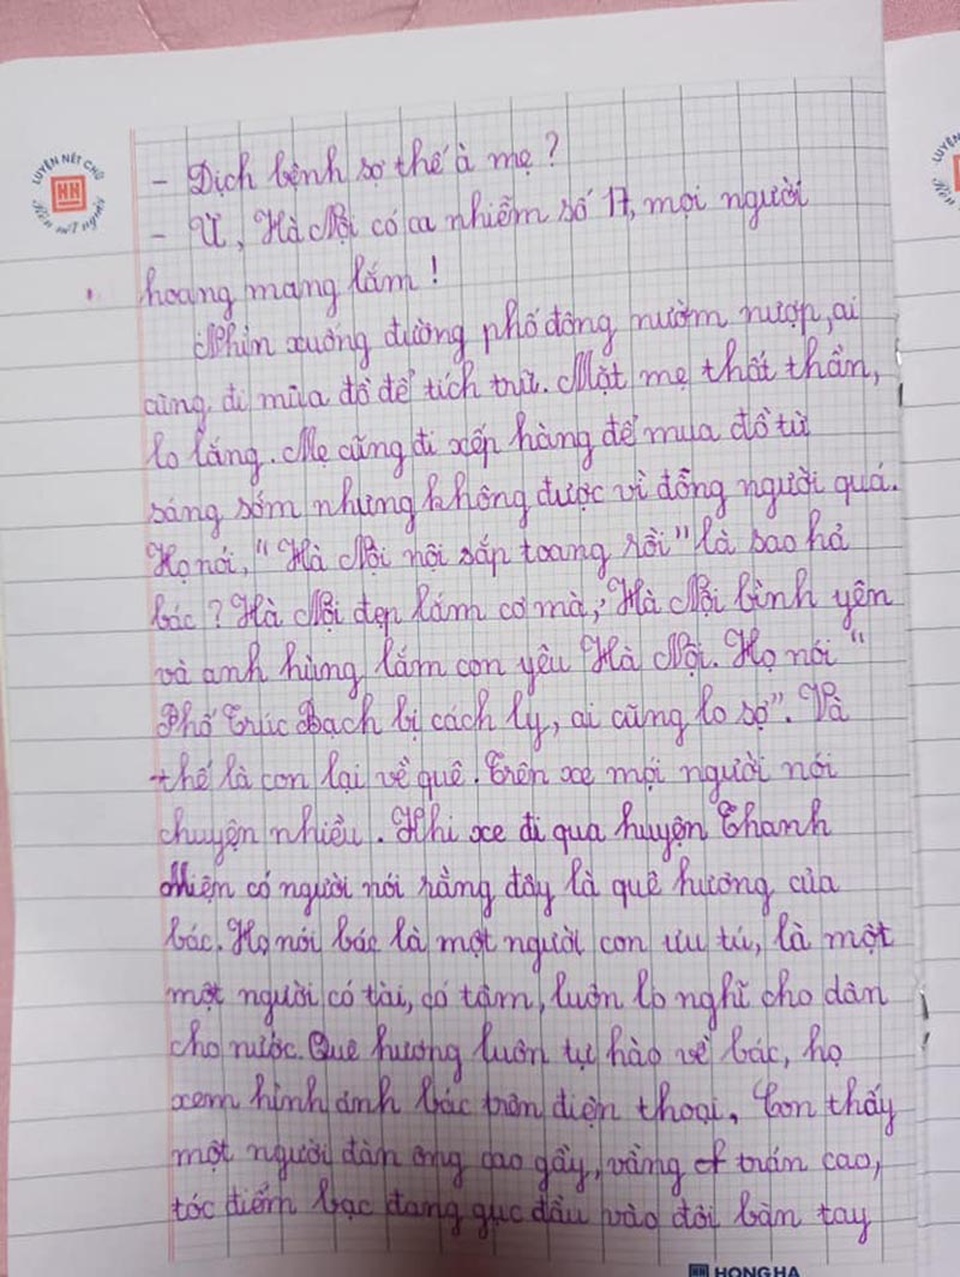 LUYỆN NÉT CHỮ
HH
Rèn nết người
- Dịch bệnh sợ thế à mẹ?
- Ừ, Hà Nội có ca nhiễm số 17, mọi người
hoang mang lắm!
Nhìn xuống đường phố đông nườm nượp, ai
cũng đi mũa đồ để tích trữ. Mặt mẹ thất thần,
lo lắng. Mẹ cũng đi xếp hàng để mua đồ từ
sáng sớm nhưng không được vì đông người quá.
Họ nói, "Hà Nội nội sắp toang rồi" là sao hả
bác? Hà Nội đẹp lắm cơ mà, Hà Nội bình yên
và anh hùng lắm con yêu Hà Nội. Họ nói "
Phố Trúc Bạch bị cách ly, ai cũng lo sợ". Và
thế là con lại về quê. Trên xe mọi người nói
chuyện nhiều. Khi xe đi qua huyện Thanh
Miện có người nói rằng đây là quê hương của
bác. Họ nói bác là một người con ưu tú, là một
một người có tài, có tâm, luôn lo nghĩ cho dân
cho nước. Quê hương luôn tự hào về bác, họ
xem hình ảnh bác trên điện thoại. Con thấy
một người đàn ông cao gầy, vầng trán cao,
tóc điểm bạc đang gục đầu vào đôi bàn tay
HONG HA